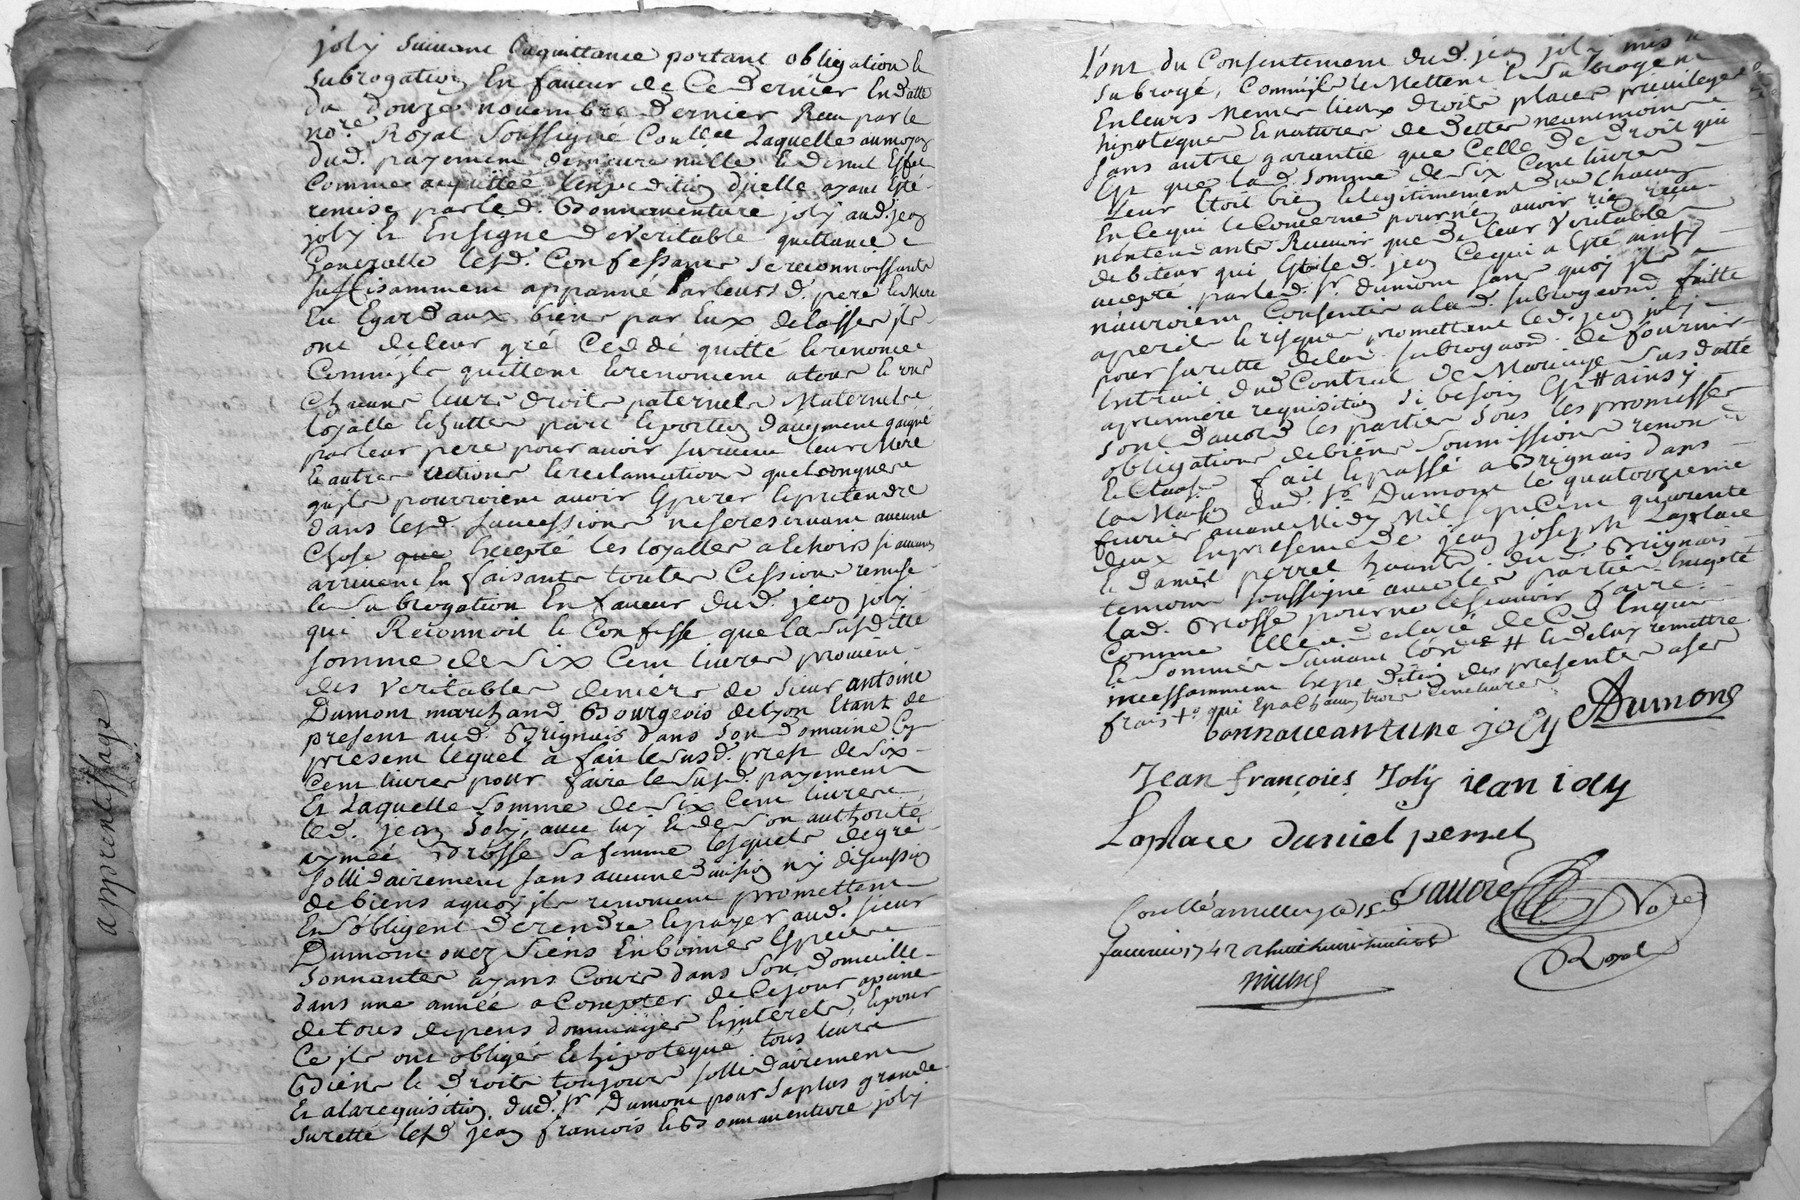 joly suivant la quittance portant obligation et
subrogation En faveur de Ce dernier En datte
du douze novembre dernier Reçu par le
nore. Royal soussigné Conllée Laquelle au moyen
dud. payement demeure nulle et de nul Effet
Comme acquittée lexpedition djcelle ayant Eté
remise par led. Bonnaventure joly aud. jean
joly En signe de veritable quittance
Generalle lesd. Confessants se reconnoissants
suffisamment appanné Par leursd. pere et Mere
Eu Egard aux biens par Eux delassés jls
ont de leur gré Cedde quitté et renoncé
Comm'jls quittent et renoncent a tous et uns
Chacuns leurs droits paternels Maternels
loyalle et futtes part et portion daugment gaigné
par leur pere pour avoir survecu leur Mere
et autres actions et reclamations quelconques
qujls pourroient avoir Esperer et pretendre
dans lesd. successions ne se reservant aucune
Chose que Excepté les loyalles Echoirs si aucunes
arrivent En faisants toutes Cessions remise
et subrogation En faveur dud. jean joly
qui Reconnoit et Confesse que la susditte
somme de six Cent livres provient
des veritables deniers de sieur antoine
Dumont marchand Bourgeois de lyon Etant de
present aud. Brignais dans son domaine Cy
present lequel a fait le susd. prest de six
Cent livres pour faire le susd. payement
Et Laquelle somme de six Cent livres
led. jean Joly, avec luy et de son authorité
aymée Brosse sa femme lesquels de gré
sollidairement sans aucune division ny discussion
de biens a quoy jls renoncent promettent
En s'obligent de rendre et payer aud. sieur
Dumont ou ez siens En bonnes Especes
sonnantes ayans Cours dans son domicille
dans une année a Compter de Ce jour a peine
de tous depens dommages et jnterets, et pour
Ce jls ont obligés et hipotequé tous leurs
Biens et droits toujours sollidairement
Et a la requisition dud. sr. Dumont pour sa plus grande
surette lesd jean francois et Bonnaventure joly
L'ont du Consentement dud. jean joly mis et
subrogé, Comm'jls le Mettent et subrogent
En leurs Memes lieux droits places privileges
hipoteques Et natures de dettes neantmoins
sans autre garantie que Celle de droit qui
Est que lad. somme de six Cent livres
leur Etoit bien et legitimement due Chacun
En Ce qui le Concerne pour n'en avoir rien reçu
n'entendants Recevoir que de leur veritable
debiteur qui Est led. jean Ce qui a Eté ainsy
accepté par led. sr. Dumont sans quoy jls
n'auroient Consentir a lad. subrogaôn faitte
a peril et risques promettent led. jean joly
pour surette de la subrogaôn de fournir
Extrait dud Contrat de Mariage sus datté
a premiere requisition si besoin Est # ainsy
sont d'accord les parties sous les promesses
obligations de biens soumissions renonc
et Clauses fait et passé a Brignais dans
la Maison dud. sr. Dumont le quatorzieme
fevrier avant Midy Mil sept Cent quarente
deux En presence de jean joseph Laplace
et daniel perrel habts. dud. Brignais
temoins soussignés avec les parties Excepté
lad. Brosse pour ne le scavoir faire
Comme Elle a declaré de Ce Enquise
et sommée suivant l'ordce # et de luy remettre
incessamment Expedition des presentes a ses
frais
bonnaveanture joly ADumont
Jean françois Joly jean joly
Laplace daniel perrel
Conllé a millery le 15e
favrier 1742
Royal